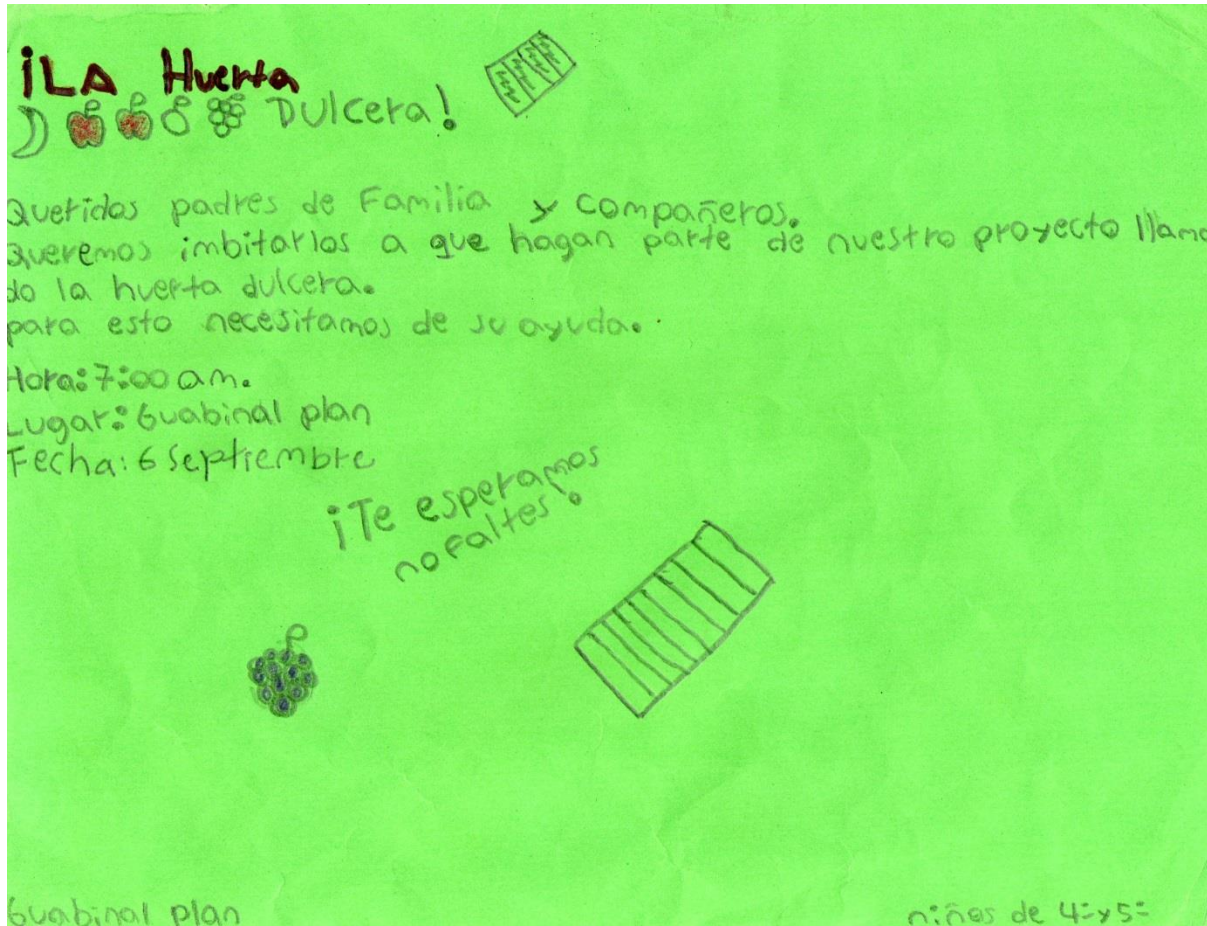 ¡LA Huerta
Dulcera!
Queridos padres de Familia y compañeros.
Queremos imbitarlos a que hagan parte de nuestro proyecto llama
do la huerta dulcera.
para esto necesitamos de su ayuda.
Hora: 7:00 am.
Lugar: Guabinal plan
Fecha: 6 Septiembre
¡Te esperamos
no faltes!
Guabinal plan
niños de 4º y 5º